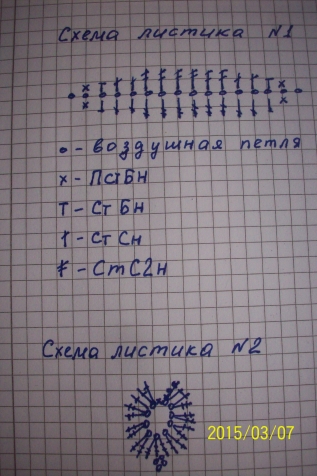 Схема листика №1
о - воздушная петля
х - ПстБн
Т - СтБн
† - СтСн
‡ - СтС2н
Схема листика №2
2015/03/07